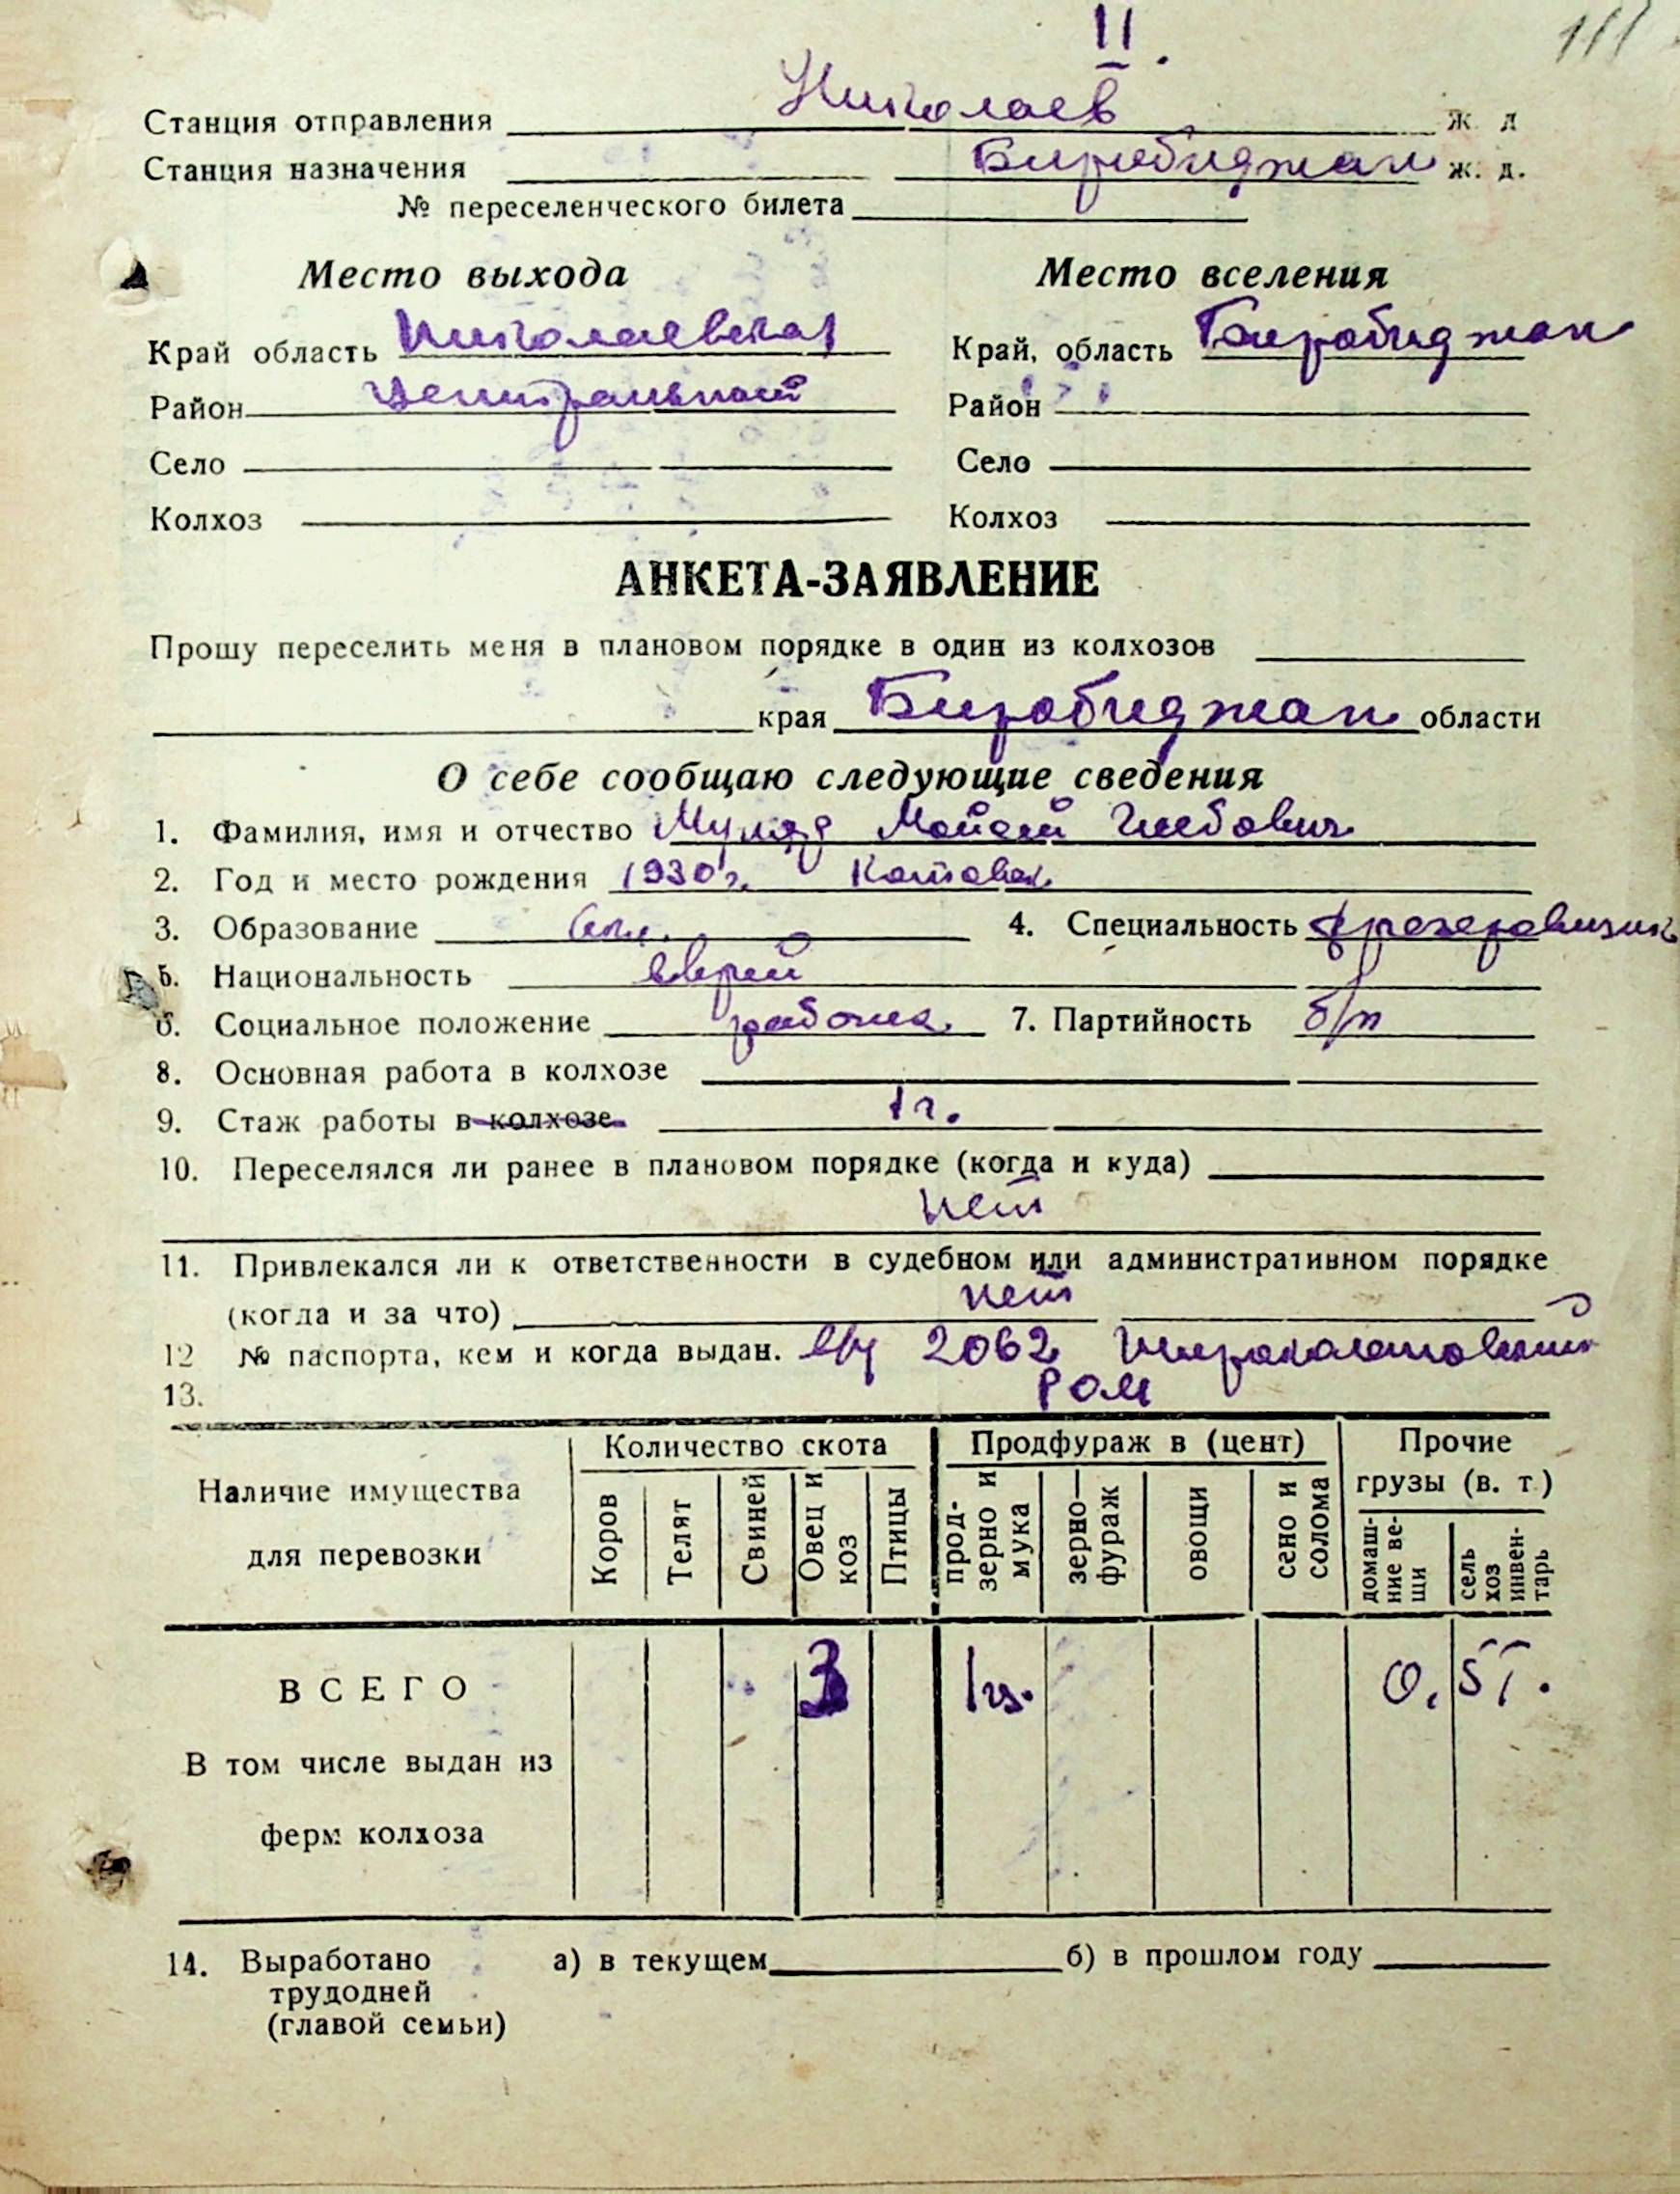 II.
111
Станция отправления Николаев ж. д
Станция назначения Биробиджан ж. д.
№ переселенческого билета
Место выхода Место вселения
Край область Николаевская Край, область Биробиджан
Район Центральный Район
Село Село
Колхоз Колхоз
АНКЕТА-ЗАЯВЛЕНИЕ
Прошу переселить меня в плановом порядке в один из колхозов
края Биробиджан области
О себе сообщаю следующие сведения
1. Фамилия, имя и отчество Мойсей
2. Год и место рождения 1930 г.
3. Образование 4. Специальность
5. Национальность еврей
6. Социальное положение рабоч. 7. Партийность б/п
8. Основная работа в колхозе
9. Стаж работы в колхозе 1 г.
10. Переселялся ли ранее в плановом порядке (когда и куда)
нет
11. Привлекался ли к ответственности в судебном или административном порядке
(когда и за что) нет
12 № паспорта, кем и когда выдан. 2062
13. РОМ
Наличие имущества для перевозки
Количество скота Продфураж в (цент) Прочие грузы (в. т.)
Коров Телят Свиней Овец и коз Птицы прод-зерно и мука зерно-фураж овощи сено и солома домаш-ние ве-щи сель хоз инвен-тарь
ВСЕГО 3 1 ц. 0,5 т.
В том числе выдан из
ферм колхоза
14. Выработано а) в текущем б) в прошлом году
трудодней
(главой семьи)